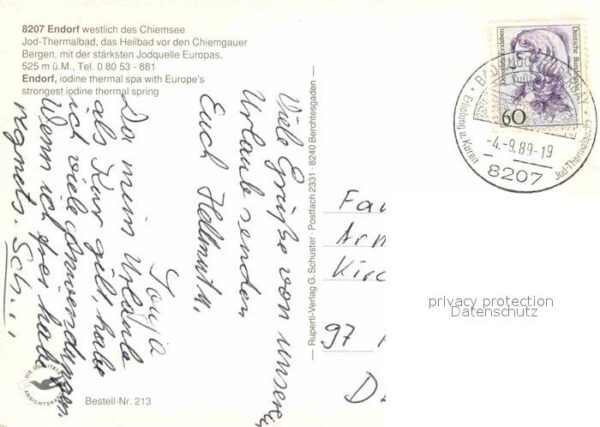 8207 Endorf westlich des Chiemsee
Jod-Thermalbad, das Heilbad vor den Chiemgauer
Bergen, mit der stärksten Jodquelle Europas,
525 m ü.M., Tel. 0 80 53 - 881
Endorf, iodine thermal spa with Europe's
strongest iodine thermal spring
Viele Grüße von unserem
Urlaub senden
Euch Hellmut u.
Sonja
Da mein Urlaub
als Kur gilt, habe
ich viele Anwendungen.
Wenn ich frei habe
regnets. Sch...
Ruperti-Verlag G. Schuster · Postfach 2331 · 8240 Berchtesgaden
Bestell-Nr. 213
Deutsche Bundespost
60
Erholung u. Kuren
-4.-9.89-19
8207
Jod-Thermalbad
Fam
Arn
Kirc
97
D
privacy protection
Datenschutz